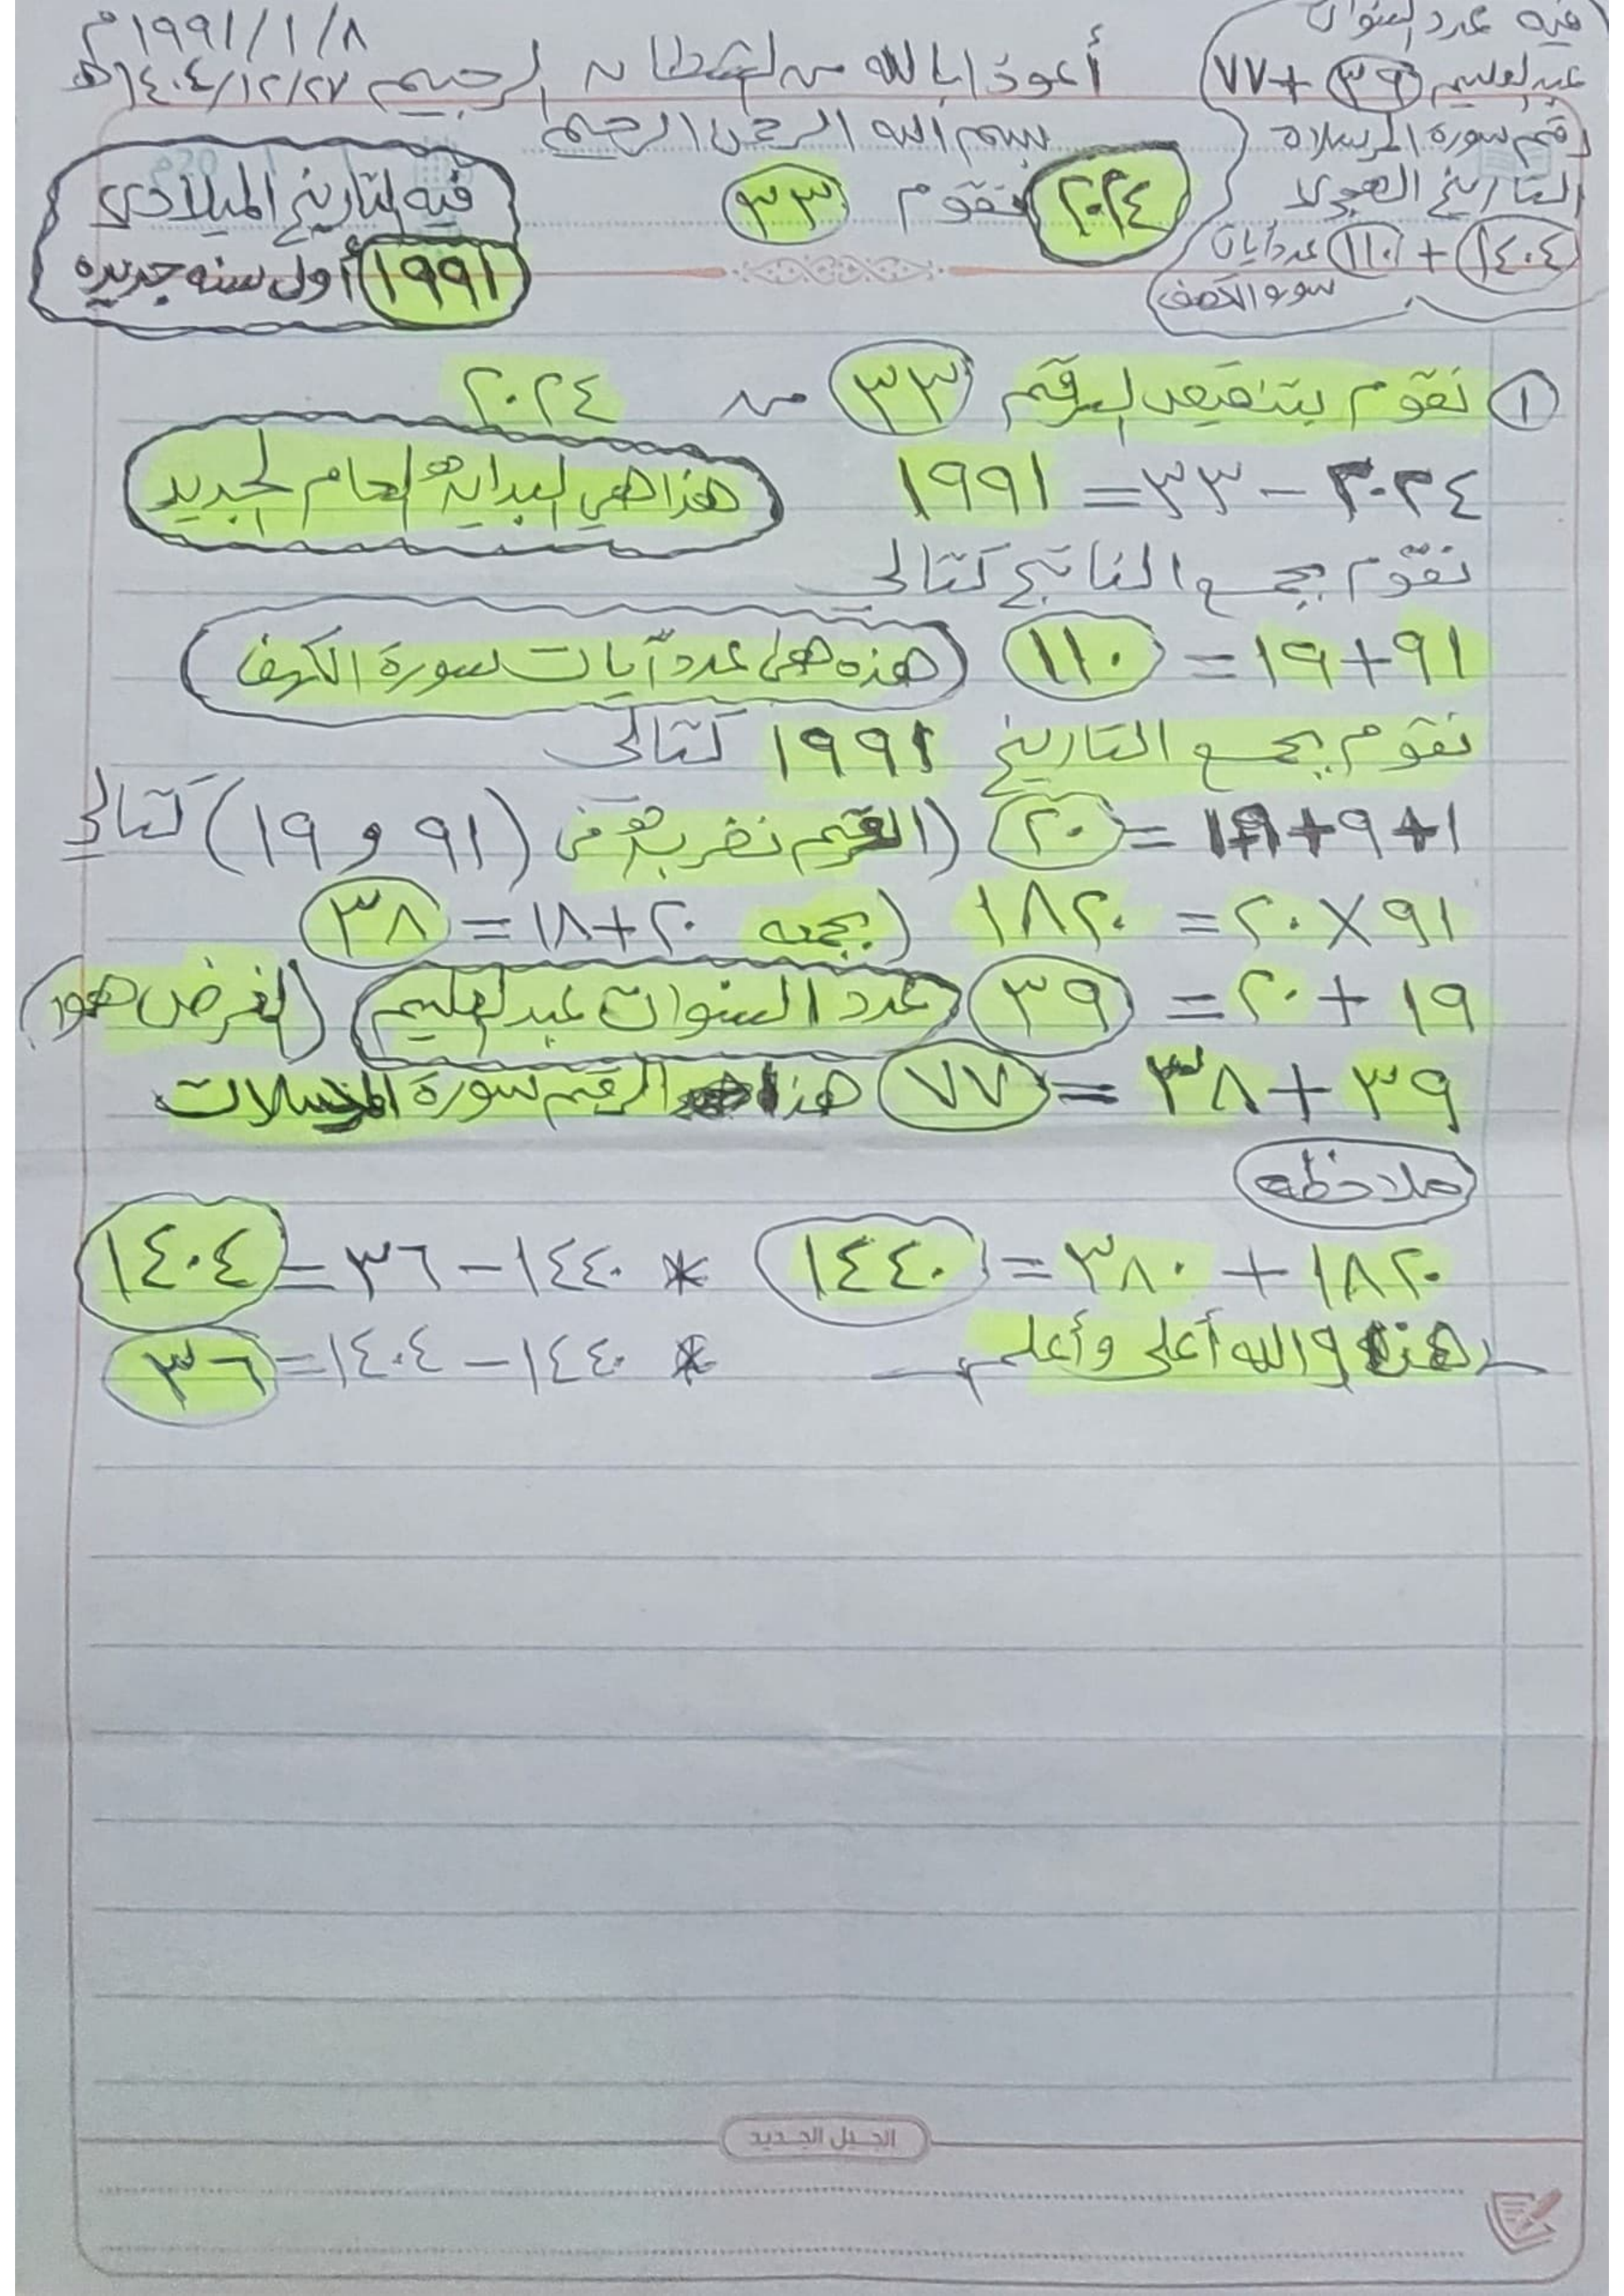 ١٩٩١/١/٨م
١٤٠٤/١٢/٢٧هـ
أعوذ بالله من الشيطان الرجيم
بسم الله الرحمن الرحيم
فيه عدد السنوات
عبدالعليم ٣٩ + ٧٧
رقم سورة المرسلاة
التاريخ الهجري
١٤٠٤ + ١١٠ عدد آيات
سورة الكهف
٢٠٢٤ نقوم ٣٣
فيه التاريخ الميلادي
١٩٩١ أول سنه جديده
١ نقوم بتنقيص الرقم ٣٣ من ٢٠٢٤
٢٠٢٤ - ٣٣ = ١٩٩١
هذا هي البداية العام الجديد
نقوم بجمع الناتج كتالي
٩١ + ١٩ = ١١٠ (هذه هي عدد آيات سورة الكهف)
نقوم بجمع التاريخ ١٩٩١ كتالي
١+٩+٩+١ = ٢٠ (الرقم نضربه في (٩١ و ١٩) كتالي
٩١ × ٢٠ = ١٨٢٠ (بجمعه ٢٠ + ١٨ = ٣٨
١٩ + ٢٠ = ٣٩ عدد السنوات عبدالعليم (الغرض هود)
٣٩ + ٣٨ = ٧٧ هذا الرقم سورة المرسلات
ملاحظه
١٨٢٠ + ٣٨٠ = ١٤٤٠ * ١٤٤٠ - ٣٦ = ١٤٠٤
هذا والله أعلى وأعلم * ١٤٤٠ - ١٤٠٤ = ٣٦
الجيل الجديد